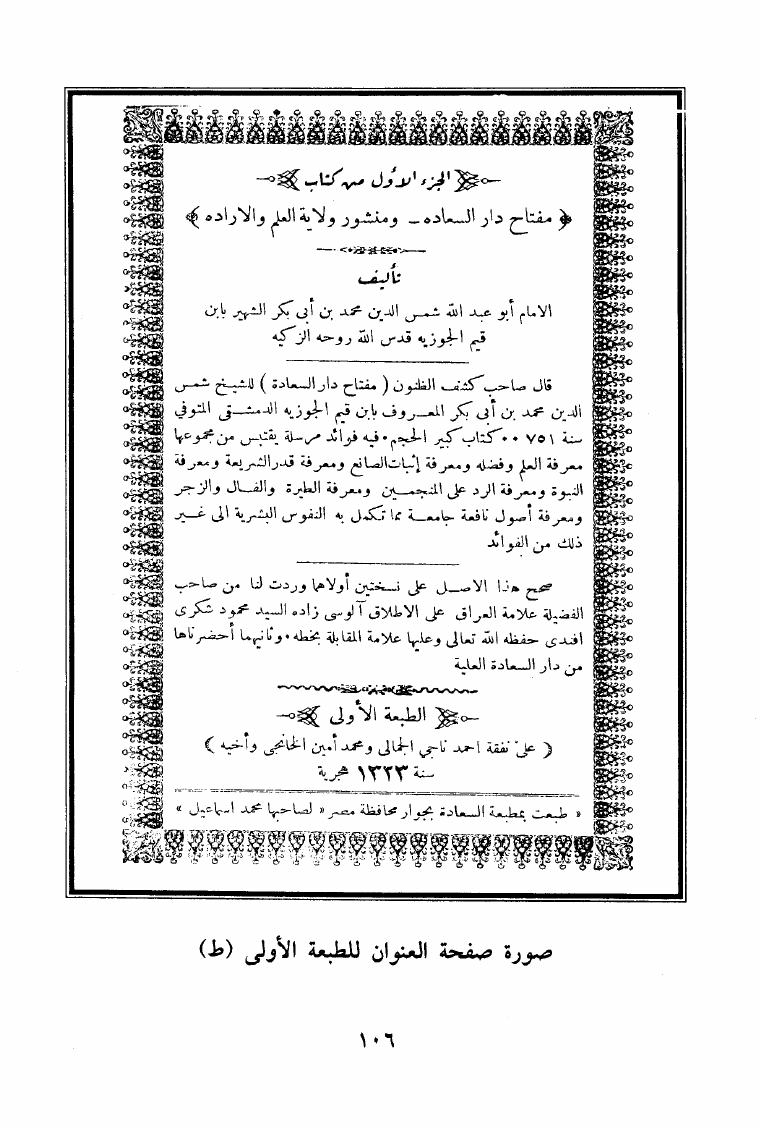 الجزء الأول من كتاب
﴿ مفتاح دار السعاده ــ ومنشور ولاية العلم والاراده ﴾
تأليف
الامام أبو عبد الله شمس الدين محمد بن أبى بكر الشهير بابن
قيم الجوزيه قدس الله روحه الزكيه
قال صاحب كشف الظنون ( مفتاح دار السعادة ) للشيخ شمس
الدين محمد بن أبى بكر المعروف بابن قيم الجوزيه الدمشقى المتوفي
سنة ٧٥١ ٠٠ كتاب كبير الحجم ٠ فيه فوائد مرسلة يقتبس من مجموعها
معرفة العلم وفضله ومعرفة إثبات الصانع ومعرفة قدر الشريعة ومعرفة
النبوة ومعرفة الرد على المنجمين ومعرفة الطيرة والفال والزجر
ومعرفة أصول نافعة جامعة مما تكمل به النفوس البشرية الى غير
ذلك من الفوائد
صحح هذا الاصل على نسختين أولاهما وردت لنا من صاحب
الفضيلة علامة العراق على الاطلاق آلوسى زاده السيد محمود شكرى
افندى حفظه الله تعالى وعليها علامة المقابلة بخطه ٠ وثانيهما أحضرناها
من دار السعادة العلية
الطبعة الأولى
( على نفقة احمد ناجي الجمالى ومحمد أمين الخانجى وأخيه )
سنة ١٣٢٣ هجرية
« طبعت بمطبعة السعادة بجوار محافظة مصر « لصاحبها محمد اسماعيل »
صورة صفحة العنوان للطبعة الأولى (ط)
١٠٦